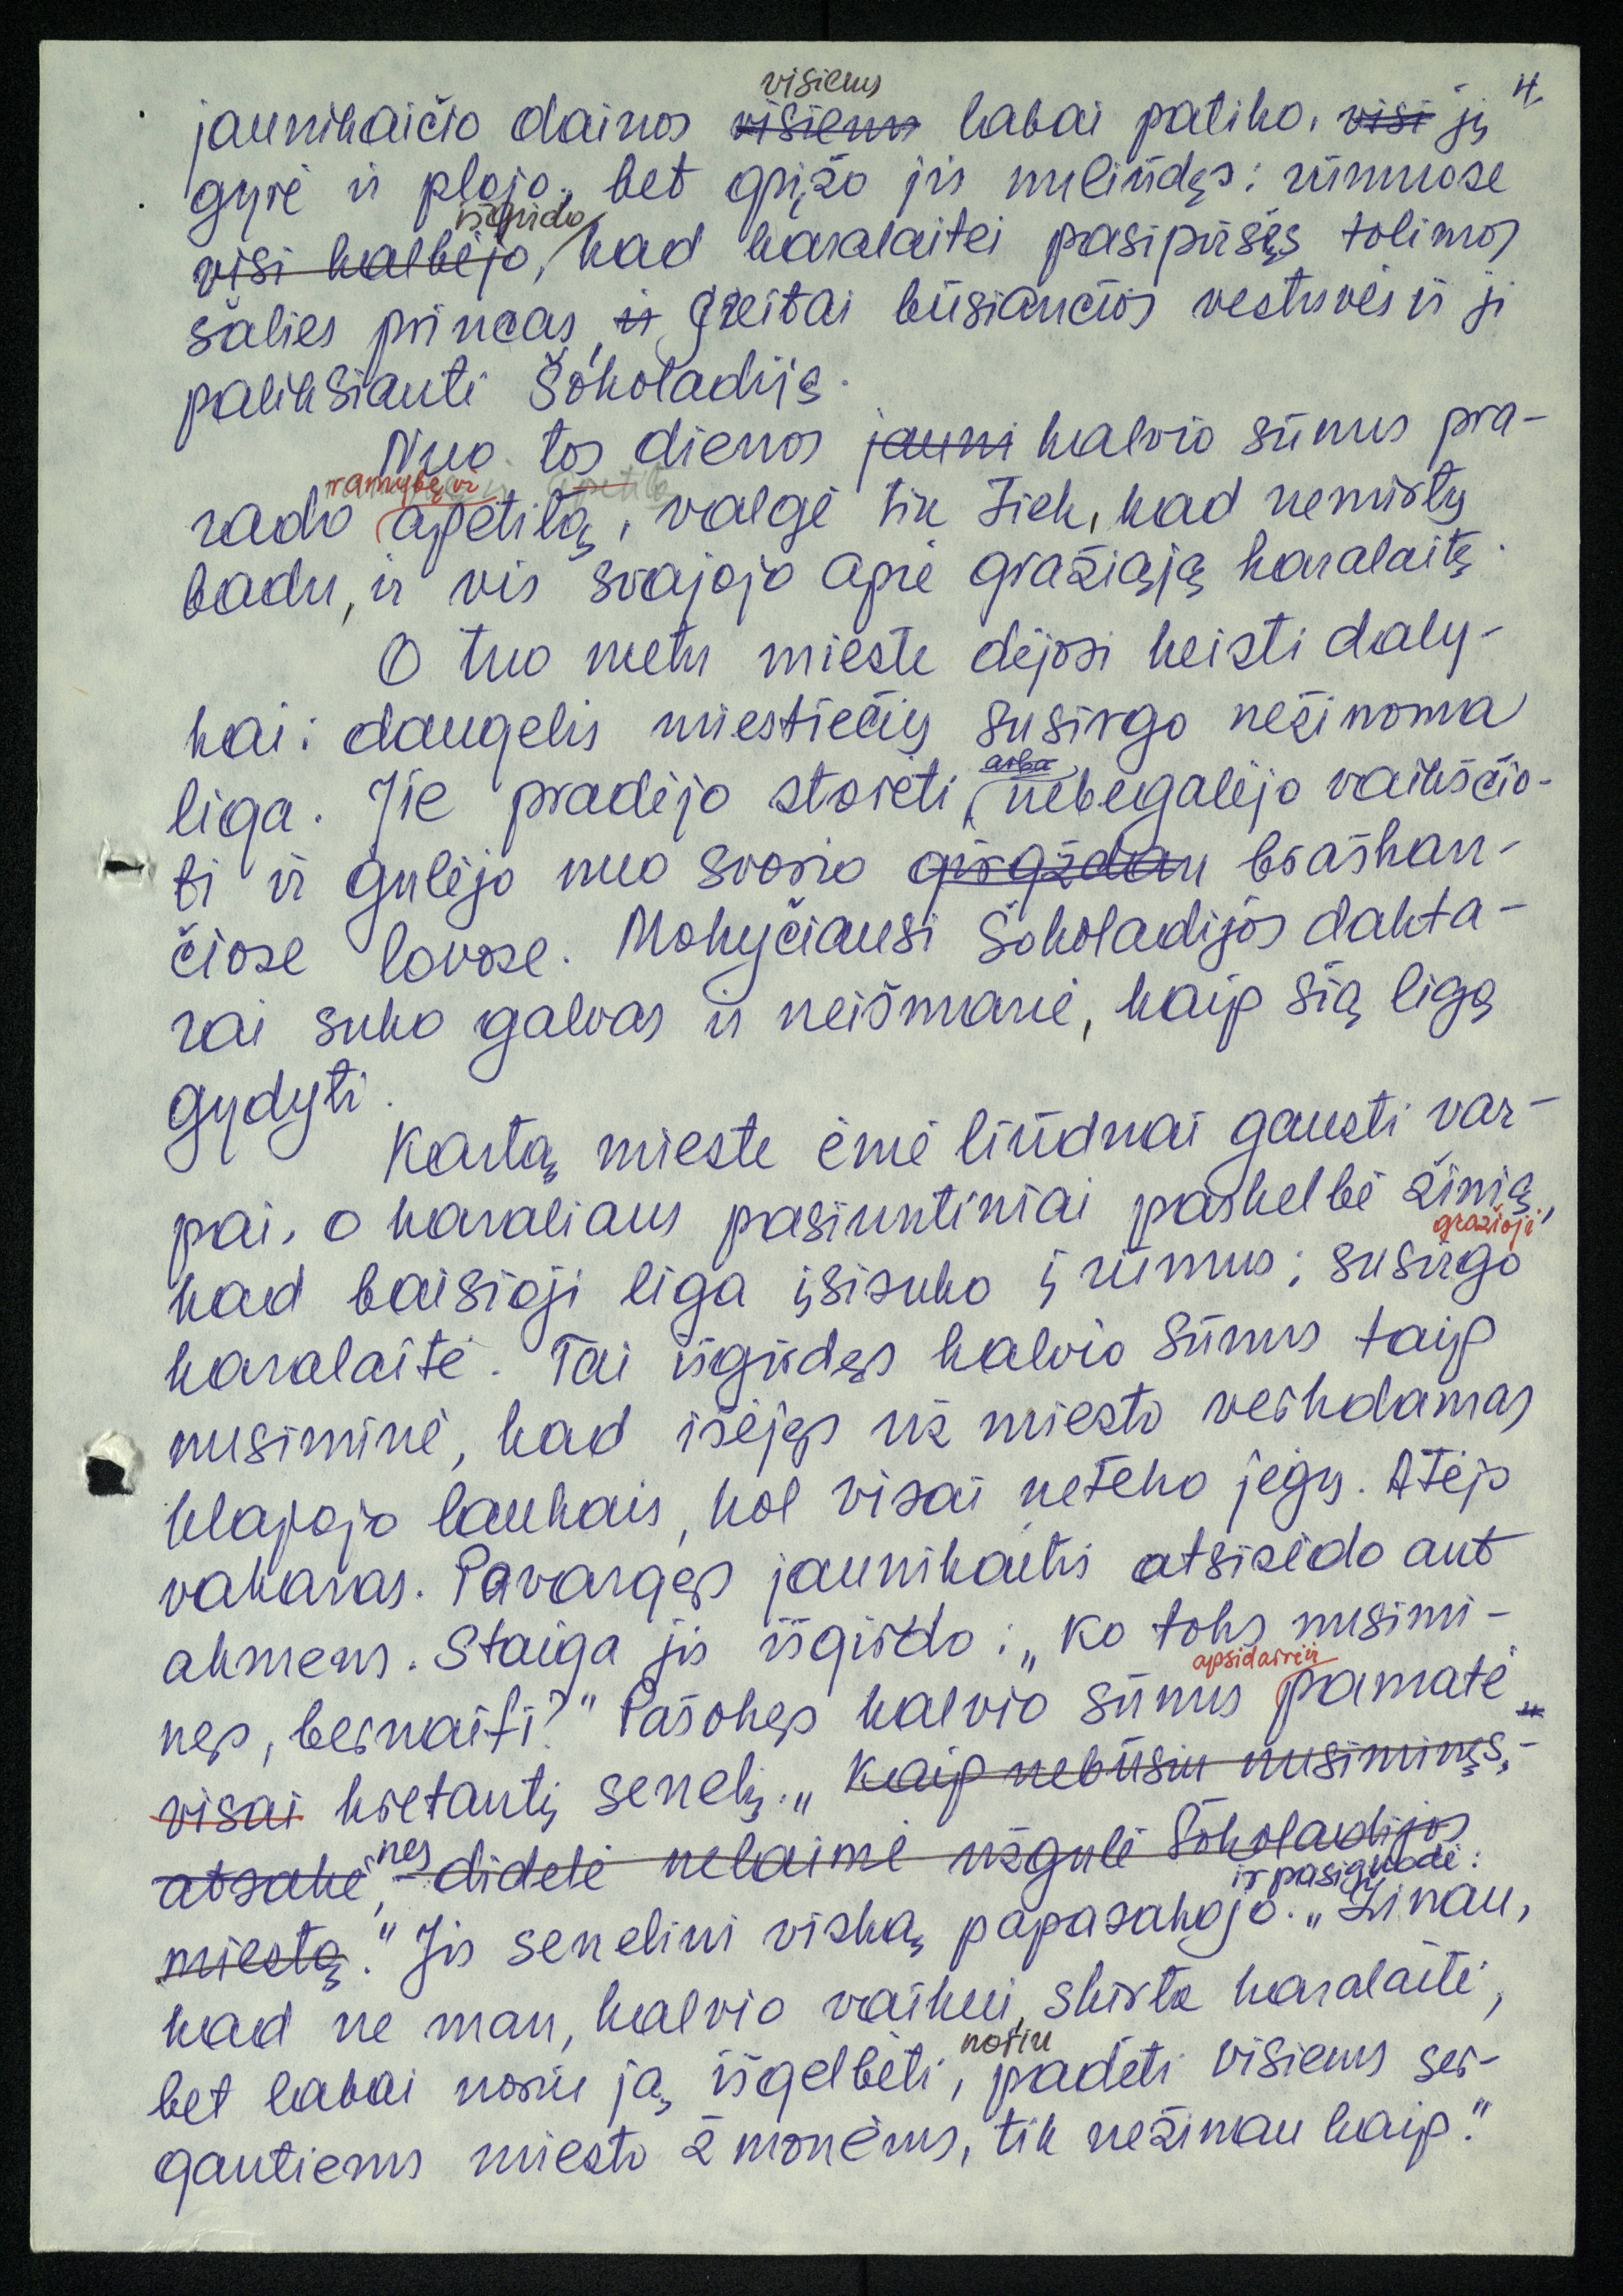 4.
visiems
jaunikaičio dainos visiems labai patiko, visi jį
gyrė ir plojo, bet grįžo jis nuliūdęs: rūmuose
išgirdo
visi kalbėjo, kad karalaitei pasipiršęs tolimos
šalies princas, ir greitai būsiančios vestuvės ir ji
paliksianti Šokoladiją.
Nuo tos dienos jauni kalvio sūnus pra-
ramybę ir
rado apetitą, valgė tik tiek, kad nemirtų
badu, ir vis svajojo apie gražiąją karalaitę.
O tuo metu mieste dėjosi keisti daly-
kai: daugelis miestiečių susirgo nežinoma
arba
liga. Jie pradėjo storėti, nebegalėjo vaikščio-
ti ir gulėjo nuo svorio girgždan braškan-
čiose lovose. Mokyčiausi Šokoladijos dakta-
rai suko galvas ir neišmanė, kaip šią ligą
gydyti.
Kartą mieste ėmė liūdnai gausti var-
pai, o karaliaus pasiuntiniai paskelbė žinią,
gražioji
kad baisioji liga įsisuko į rūmus; susirgo
karalaitė. Tai išgirdęs kalvio sūnus taip
nusiminė, kad išėjęs už miesto verkdamas
klajojo laukais, kol visai neteko jėgų. Atėjo
vakaras. Pavargęs jaunikaitis atsisėdo ant
akmens. Staiga jis išgirdo: „Ko toks nusimi-
apsidairė ir
nęs, bernaiti?" Pašokęs kalvio sūnus pamatė
visai kretantį senelį. „Kaip nebūsiu nusiminęs, -
atsakė, - didelė nelaimė užgulė Šokoladijos
nes
ir pasiguodė:
miestą." Jis seneliui viską papasakojo. „Žinau,
kad ne man, kalvio vaikui, skirta karalaitė,
noriu
bet labai noriu ją išgelbėti, padėti visiems ser-
gantiems miesto žmonėms, tik nežinau kaip."